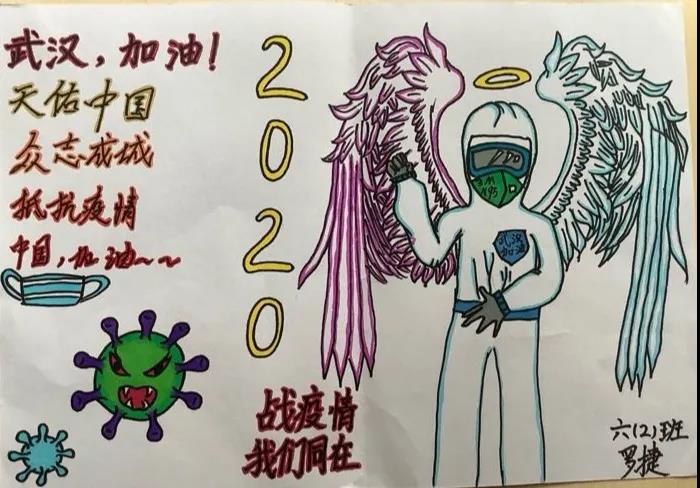 武汉，加油！
天佑中国
众志成城
抵抗疫情
中国，加油~~
2020
战疫情
我们同在
3M
N95
武汉
加油
六(2)班
罗捷